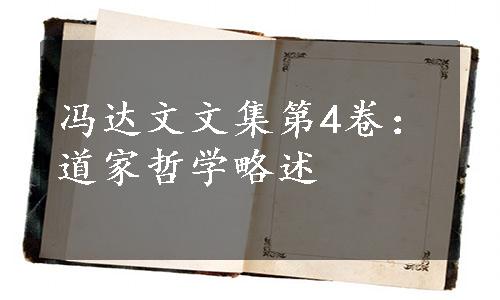 冯达文文集第4卷：
道家哲学略述